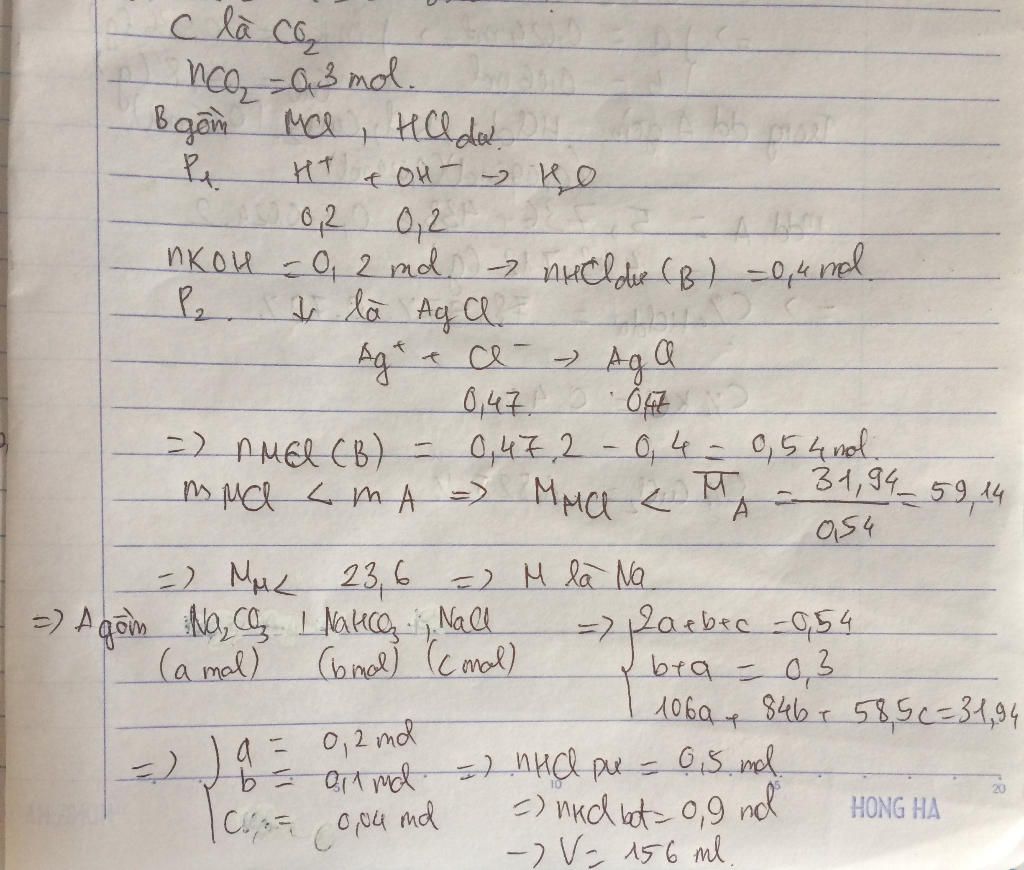 C là CO₂
nCO₂ = 0,3 mol.
B gồm MCl, HCl dư
P₁. H⁺ + OH⁻ → H₂O
0,2 0,2
nKOH = 0,2 mol → nHCl dư (B) = 0,4 mol.
P₂. ↓ là AgCl.
Ag⁺ + Cl⁻ → AgCl
0,47. 0,47
=> nMCl (B) = 0,47.2 - 0,4 = 0,54 mol.
mMCl < mA => M_MCl < M̅_A = 31,94/0,54 = 59,14
=> M_M < 23,6 => M là Na
=> A gồm Na₂CO₃, NaHCO₃, NaCl => { 2a+b+c = 0,54
(a mol) (b mol) (c mol) b+a = 0,3
106a + 84b + 58,5c = 31,94
=> { a = 0,2 mol
b = 0,1 mol => nHCl pư = 0,5 mol
c = 0,04 mol => nHCl bđ = 0,9 mol
→ V = 156 ml.
HONG HA